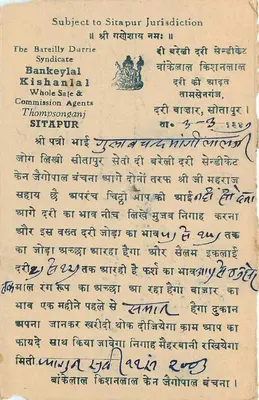 Subject to Sitapur Jurisdiction
॥ श्री गणेशाय नमः ॥
The Bareilly Durrie
Syndicate
Bankeylal
Kishanlal
Whole Safe &
Commission Agents
Thompsonganj
SITAPUR
दी बरेली दरी सेन्डीकेट
बांकेलाल किशनलाल
दरी की आढ़त
तामसेनगंज,
दरी बाजार, सीतापुर ।
ता०
श्री पत्री भाई
जोग लिखी सीतापुर सेती दी बरेली दरी सेन्डीकेट
केन जैगोपाल बंचना आगे दोनों तरफ श्री जी महराज
सहाय है अपरंच चिट्ठी आप की आई
आगे दरी का भाव नीचे लिखे मुजब निगाह करना
और इस वक्त दरी जोड़ा का भाव
तक का जोड़ा अच्छा आरहा है और सेलम इकलाई
दरी तक आरही है फर्श का भाव
तक माल रंग रूप का अच्छा आ रहा हैगा बाजार का
भाव एक महीने पहले से समान हैगा दुकान
अपना जानकर खरीदी थोक दीजियेगा काम आप का
फायदे साथ किया जावेगा निगाह मैहरबानी रखियेगा
मिती फागुन सुदी
बांकेलाल किशनलाल केन जैगोपाल बंचना ।